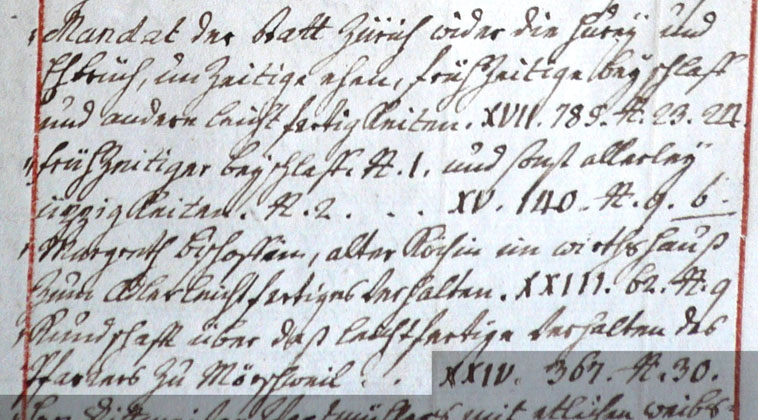 Mandat der Statt Zürich wider die hurey und
Ehbruch, unzeitige ehen, frühzeitige beyschlaff
und andere leichtfertigkeiten. XVII. 785. N. 23. 24
frühzeitiger beyschlaff. N. 1. und sonst allerley
üppigkeiten. N. 2. . . XV. 140. N. 9. 6.
Margreth Bischoffin, alter Köchin im wirthshauß
zum leichtfertiges verhalten. XXIII. 62. N. 9
Kundschafft über daß leichtfertige verhalten des
Pfarrers zu Mörschweil . . XXIV. 367. N. 30.
mit etlichen weibs-